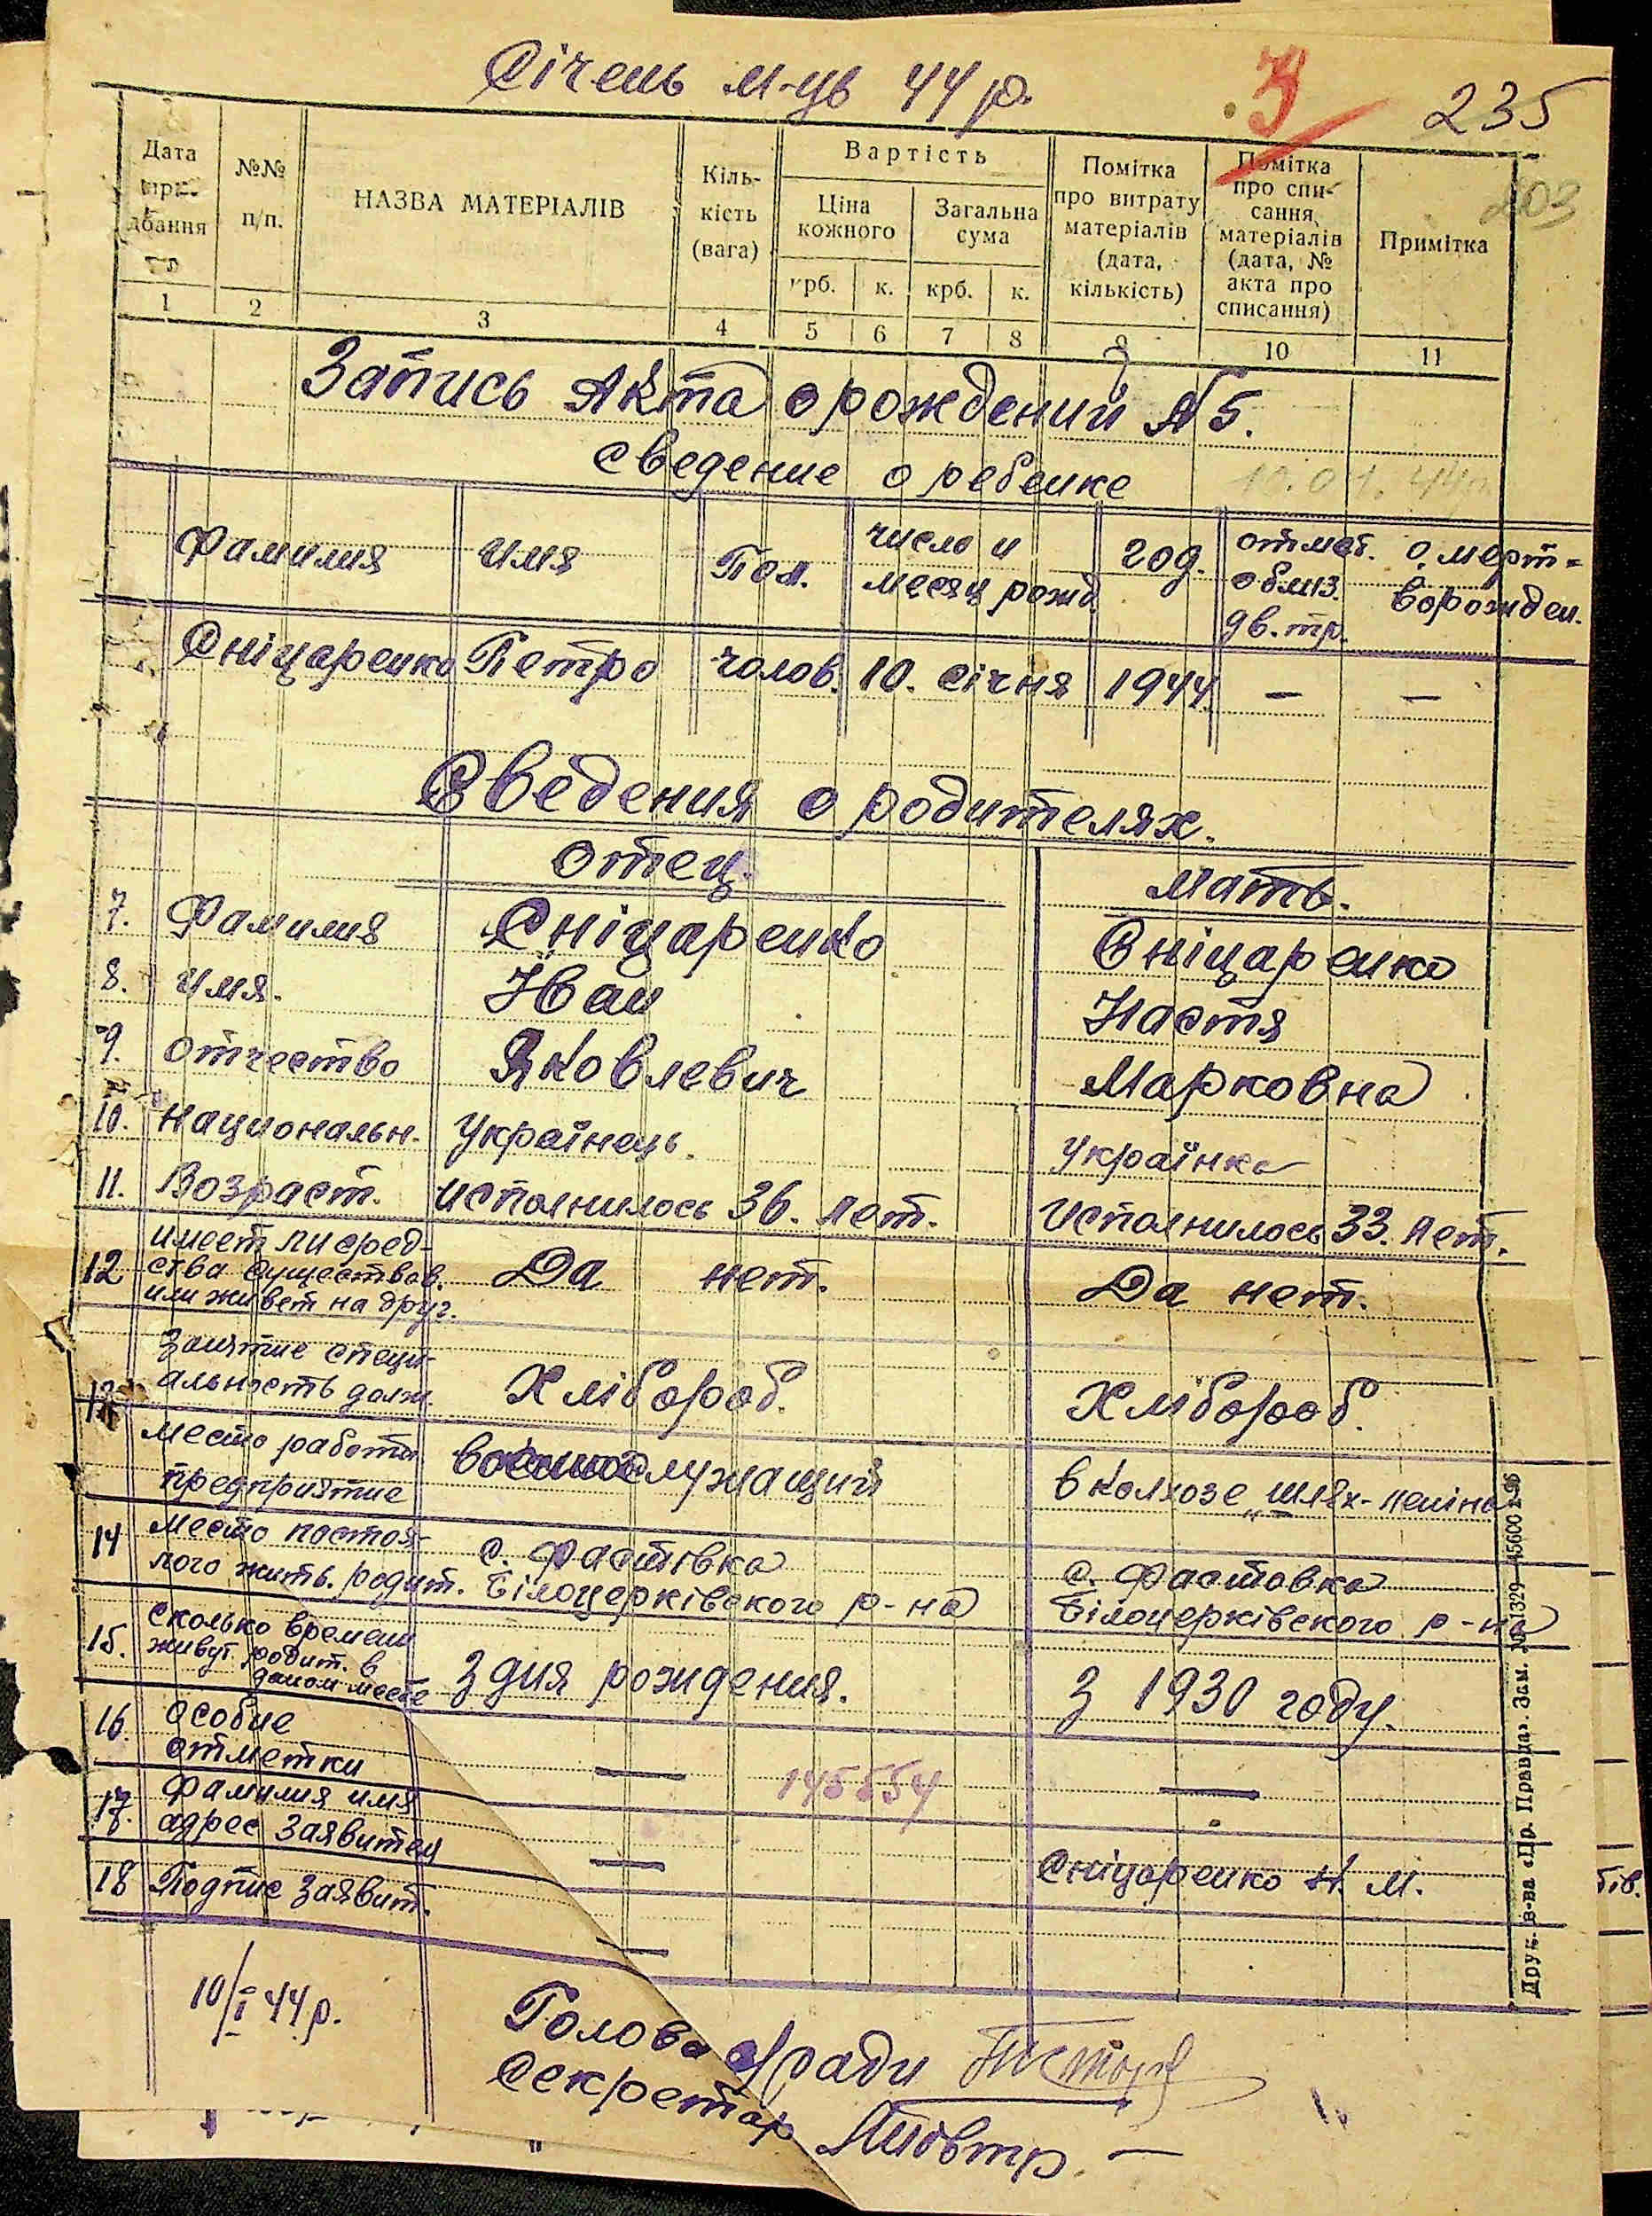 Січень м-ць 44 р.
3
235
203
Дата
дбання
№№
п/п.
НАЗВА МАТЕРІАЛІВ
Кіль-
кість
(вага)
Вартість
Ціна
кожного
Загальна
сума
крб.
к.
крб.
к.
Помітка
про витрату
матеріалів
(дата,
кількість)
Помітка
про спи-
сання
матеріалів
(дата, №
акта про
списання)
Примітка
1 2 3 4 5 6 7 8 9 10 11
Запись Акта о рождении №5.
Сведение о ребенке
10.01.44р.
Фамилия
имя
Пол.
число и
месяц рожд.
год.
отмет.
о близ.
дв. тр.
о мерт-
ворожден.
Сніцаренко Петро чолов. 10. січня 1944. — —
Сведения о родителях.
отец.
мать.
7. Фамилия Сніцаренко Сніцаренко
8. имя. Іван Настя
9. отчество Яковлевич Марковна
10. национальн. Українець. Українка
11. Возраст. исполнилось 36. лет. Исполнилось 33. лет.
12 имеет ли сред-
ства существов.
или живет на друг.
Да нет.
Да нет.
13 занятие специ-
альность долж.
Хлібороб.
Хлібороб.
место работы
предприятие
военнослужащий
в колхозе „Шлях-леніна
14 Место постоя-
ного жить. родит.
с. Фастівка
Білоцерківского р-на
с. Фастовка
Білоцерківского р-на
15. Сколько времени
живут родит. в
даном месте
З дня рождения.
З 1930 году.
16. особые
отметки
—
145554
—
17. Фамилия имя
адрес заявителя
—
Сніцаренко Н. М.
18 Подпис заявит.
—
10/І 44 р.
Голова с/ради
Секретар
Друк. в-ва «Пр. Правда». Зам. № 1329—45600 2-96